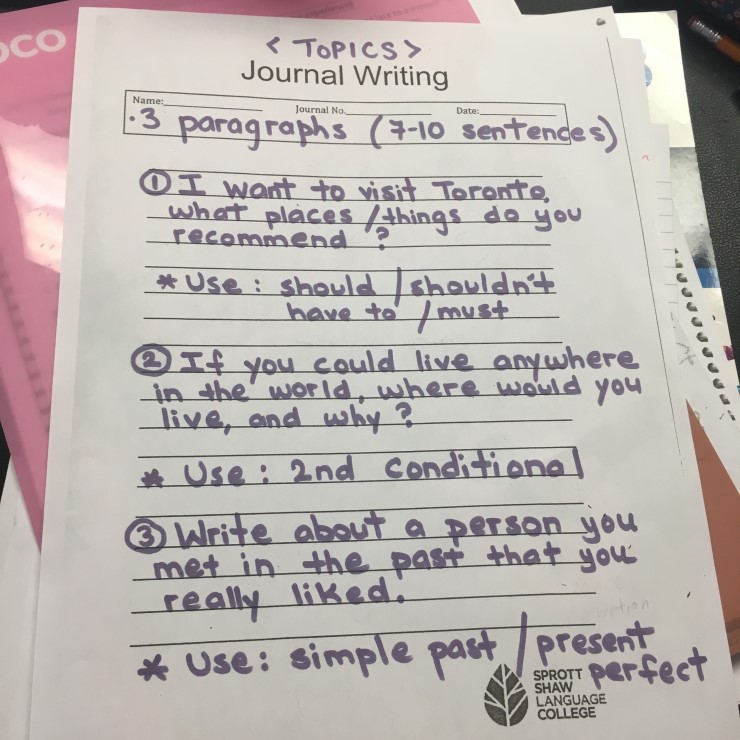 OCO
< TOPICS >
Journal Writing
Name: Journal No. Date:
• 3 paragraphs (7-10 sentences)
① I want to visit Toronto,
what places / things do you
recommend ?
* Use : should / shouldn't
have to / must
② If you could live anywhere
in the world, where would you
live, and why ?
* Use : 2nd Conditional
③ Write about a person you
met in the past that you
really liked.
* Use : simple past / present
perfect
SPROTT
SHAW
LANGUAGE
COLLEGE